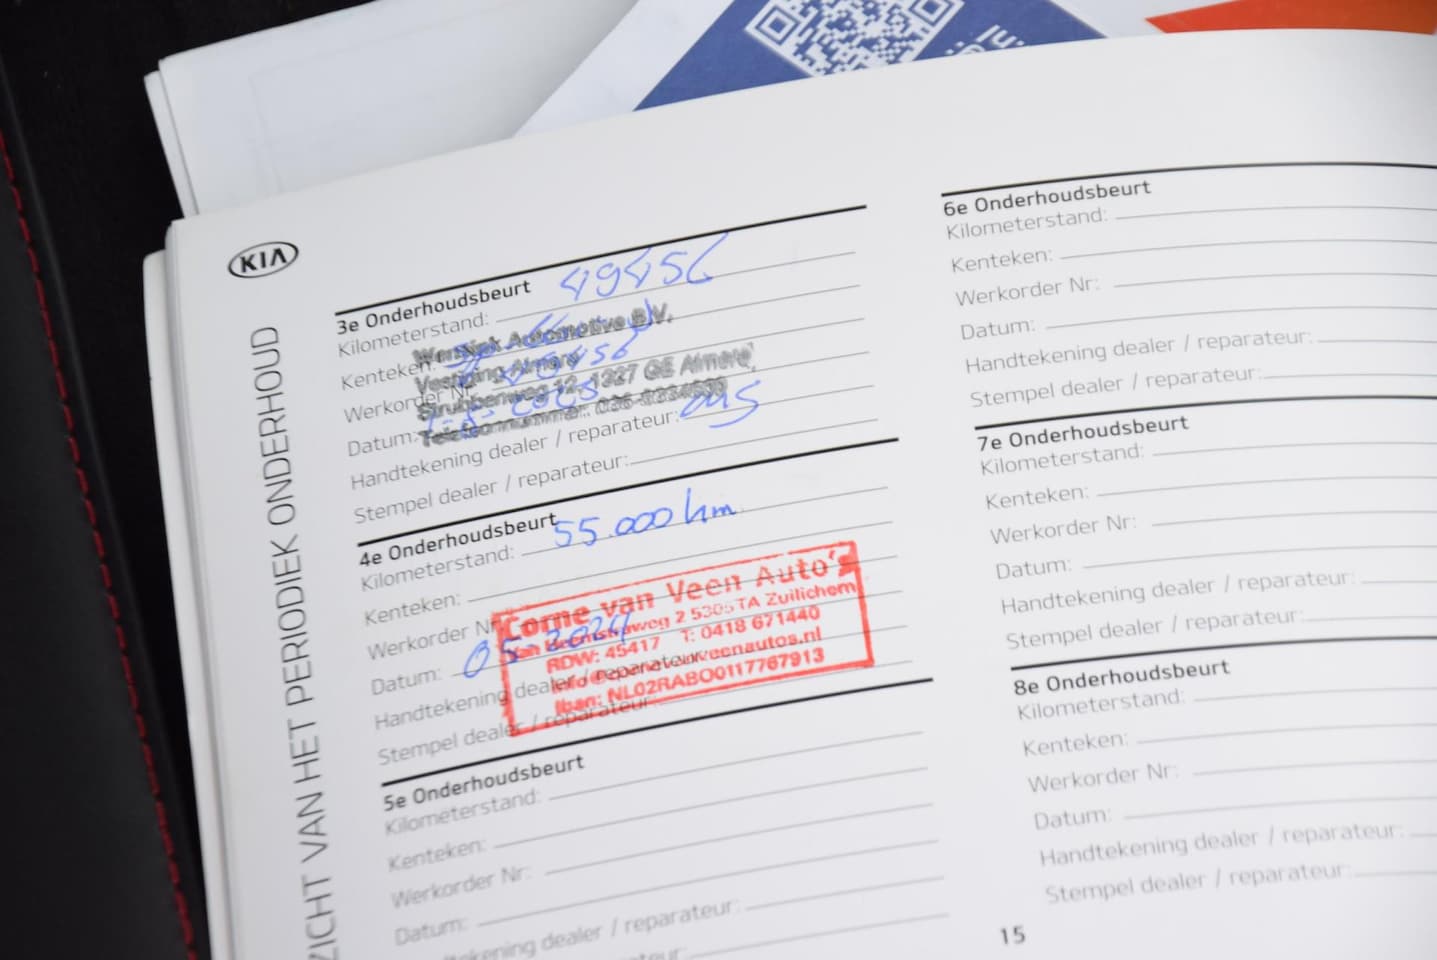 KIA
ZICHT VAN HET PERIODIEK ONDERHOUD
3e Onderhoudsbeurt
Kilometerstand: 49456
Kenteken:
Werkorder Nr:
Datum:
Handtekening dealer / reparateur:
Stempel dealer / reparateur:
Automotive B.V.
Vestiging Almere
Strubbenweg 12, 1327 GE Almere
Telefoonnummer: 036-
4e Onderhoudsbeurt
Kilometerstand: 55.000 km
Kenteken:
Werkorder Nr
Datum: 05 2024
Handtekening dealer / reparateur
Stempel dealer / reparateur:
Come van Veen Auto's
weg 2 5305 TA Zuilichem
RDW: 45417 T: 0418 671440
veenautos.nl
Iban: NL02RABO0117767913
5e Onderhoudsbeurt
Kilometerstand:
Kenteken:
Werkorder Nr:
Datum:
tekening dealer / reparateur:
dealer / reparateur:
6e Onderhoudsbeurt
Kilometerstand:
Kenteken:
Werkorder Nr:
Datum:
Handtekening dealer / reparateur:
Stempel dealer / reparateur:
7e Onderhoudsbeurt
Kilometerstand:
Kenteken:
Werkorder Nr:
Datum:
Handtekening dealer / reparateur:
Stempel dealer / reparateur:
8e Onderhoudsbeurt
Kilometerstand:
Kenteken:
Werkorder Nr:
Datum:
Handtekening dealer / reparateur:
Stempel dealer / reparateur:
15